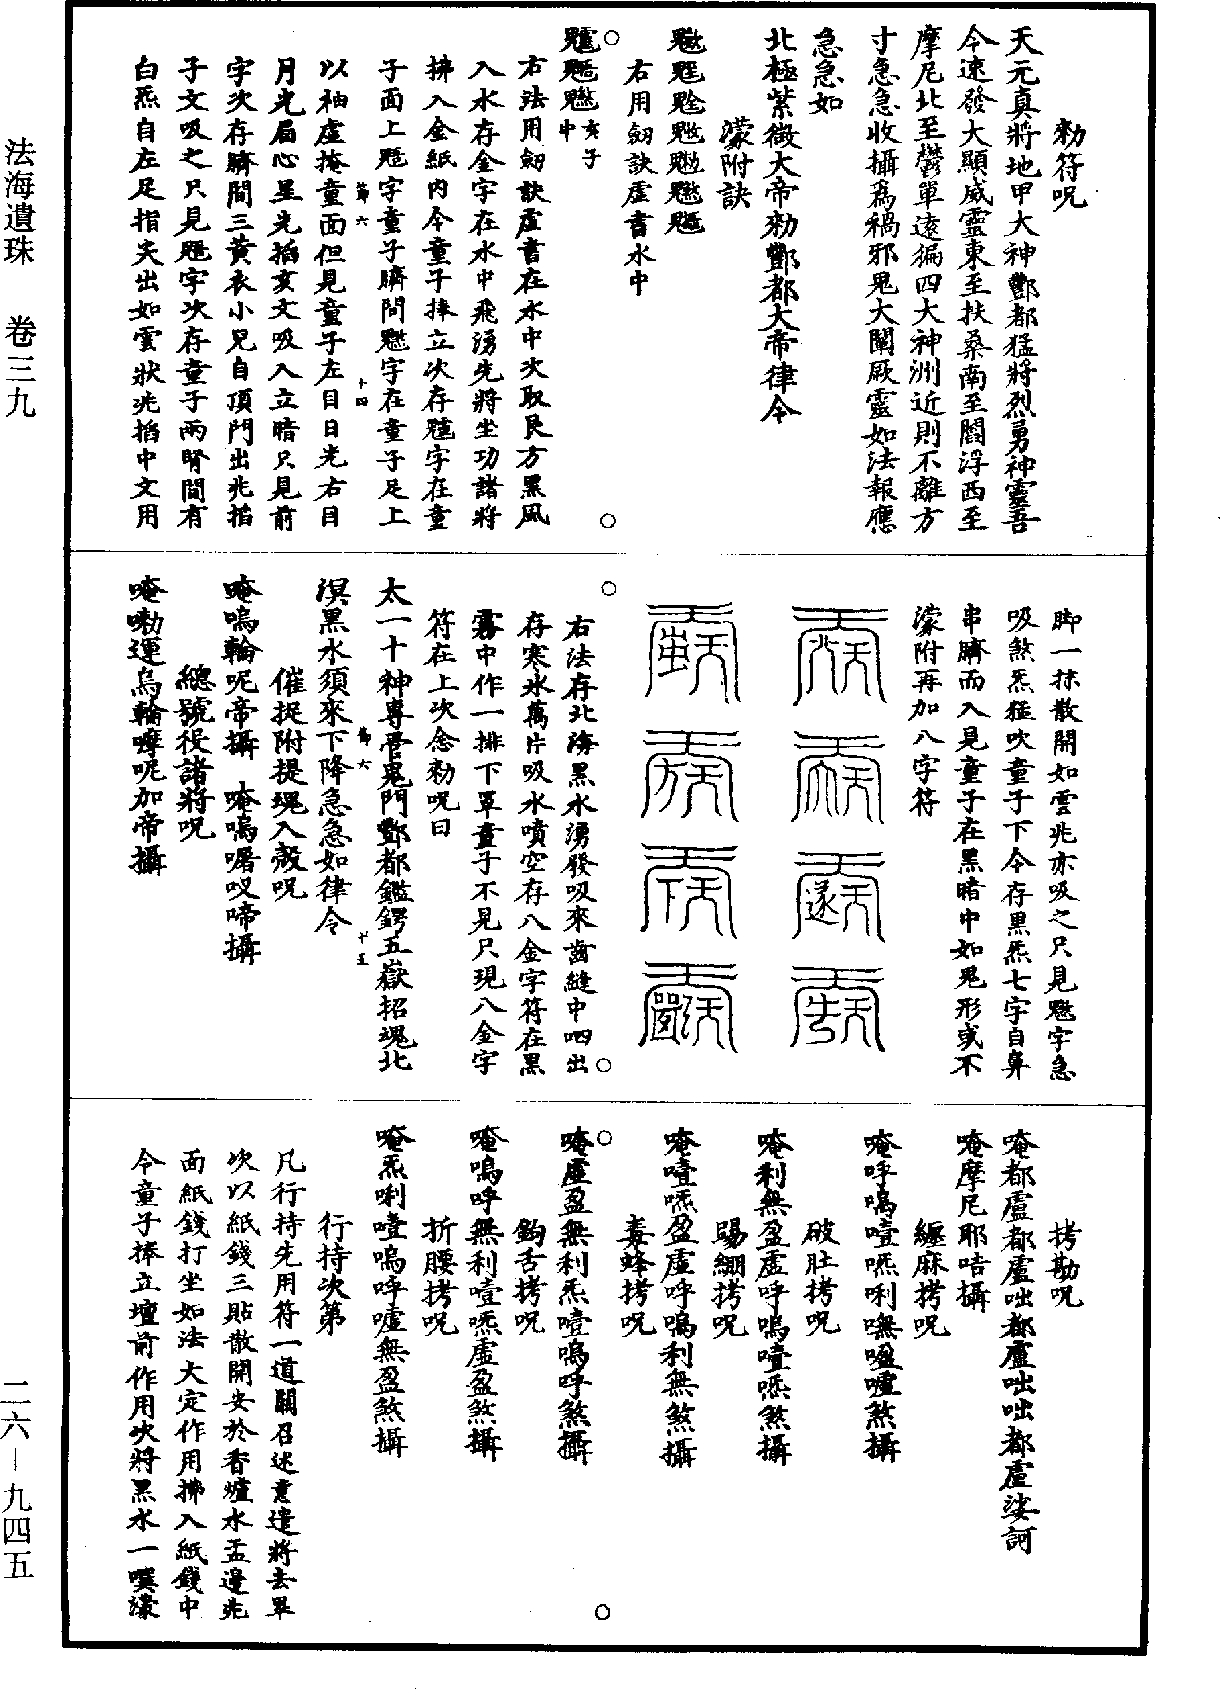 勑符呪
天元真將地甲大神酆都猛將烈勇神靈吾
今速發大顯威靈東至扶桑南至閻浮西至
摩尼北至鬱單遠徧四大神洲近則不離方
寸急急收攝爲禍邪鬼大闡厥靈如法報應
急急如
北極紫微大帝勑酆都大帝律令
濛附訣
右用劒訣虛書水中
亥子
中
右法用劒訣虛書在水中次取艮方黑風
入水存金字在水中飛湧先將坐功諸將
拂入金紙內令童子捧立次存魒字在童
子面上字童子臍間魓字在童子足上
以袖虛掩童面但見童子左目日光右目
第六
十四
月光眉心星光掐亥文吸入立暗只見前
字次存臍間三黃衣小兒自頂門出兆掐
子文吸之只見字次存童子兩腎間有
白炁自左足指尖出如雲狀兆掐中文用
脚一抹散開如雲兆亦吸之只見字急
吸煞炁猛吹童子下令存黑炁七字自鼻
串臍而入見童子在黑暗中如鬼形或不
濛附再加八字符
右法存北海黑水湧發吸來齒縫中呬出
存寒冰萬片吸水噴空存八金字符在黑
霧中作一排下罩童子不見只現八金字
符在上次念勑呪曰
太一十神專管鬼門酆都鑑鍔五嶽招魂北
溟黑水須來下降急急如律令
第六
十五
催捉附提魂入殼呪
唵嗚輪呢帝攝　唵嗚囉叹啼攝
總號役諸將呪
唵嘞運烏輪嚤呢加帝攝
拷勘呪
唵都盧都盧咄都盧咄咄都盧娑訶
唵摩尼耶唔攝
纏麻拷呪
唵呼嗚噎㗭唎嘸嗌嚧煞攝
破肚拷呪
唵利無盈虛呼嗚噎㗭煞攝
踢綳拷呪
唵噎㗭盈虛呼嗚利無煞攝
毒蜂拷呪
唵虛盈無利炁噎嗚呼煞攝
鉤舌拷呪
唵嗚呼無利噎㗭虛盈煞攝
折腰拷呪
唵炁唎噎嗚呼嘘無盈煞攝
行持次第
凡行持先用符一道關召述意遣將去畢
次以紙錢三貼散開安於香爐水盂邊兆
面紙錢打坐如法大定作用拂入紙錢中
令童子捧立壇前作用次將黑水一噀濛
法海遺珠　卷三九
二六—九四五